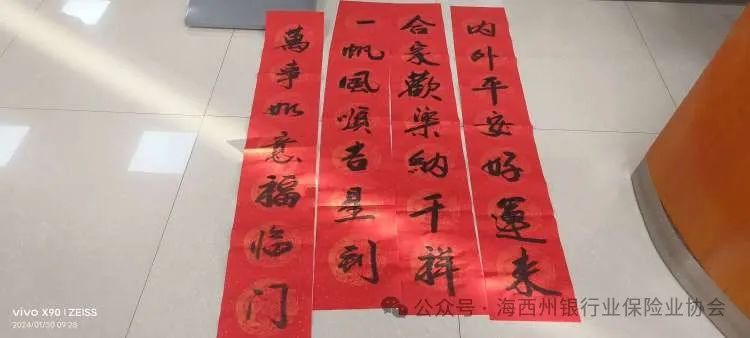 内外平安好運来
合家歡樂納千祥
一帆風順吉星到
萬事如意福临门
vivo X90 | ZEISS
2024/01/30 09:28
公众号 · 海西州银行业保险业协会